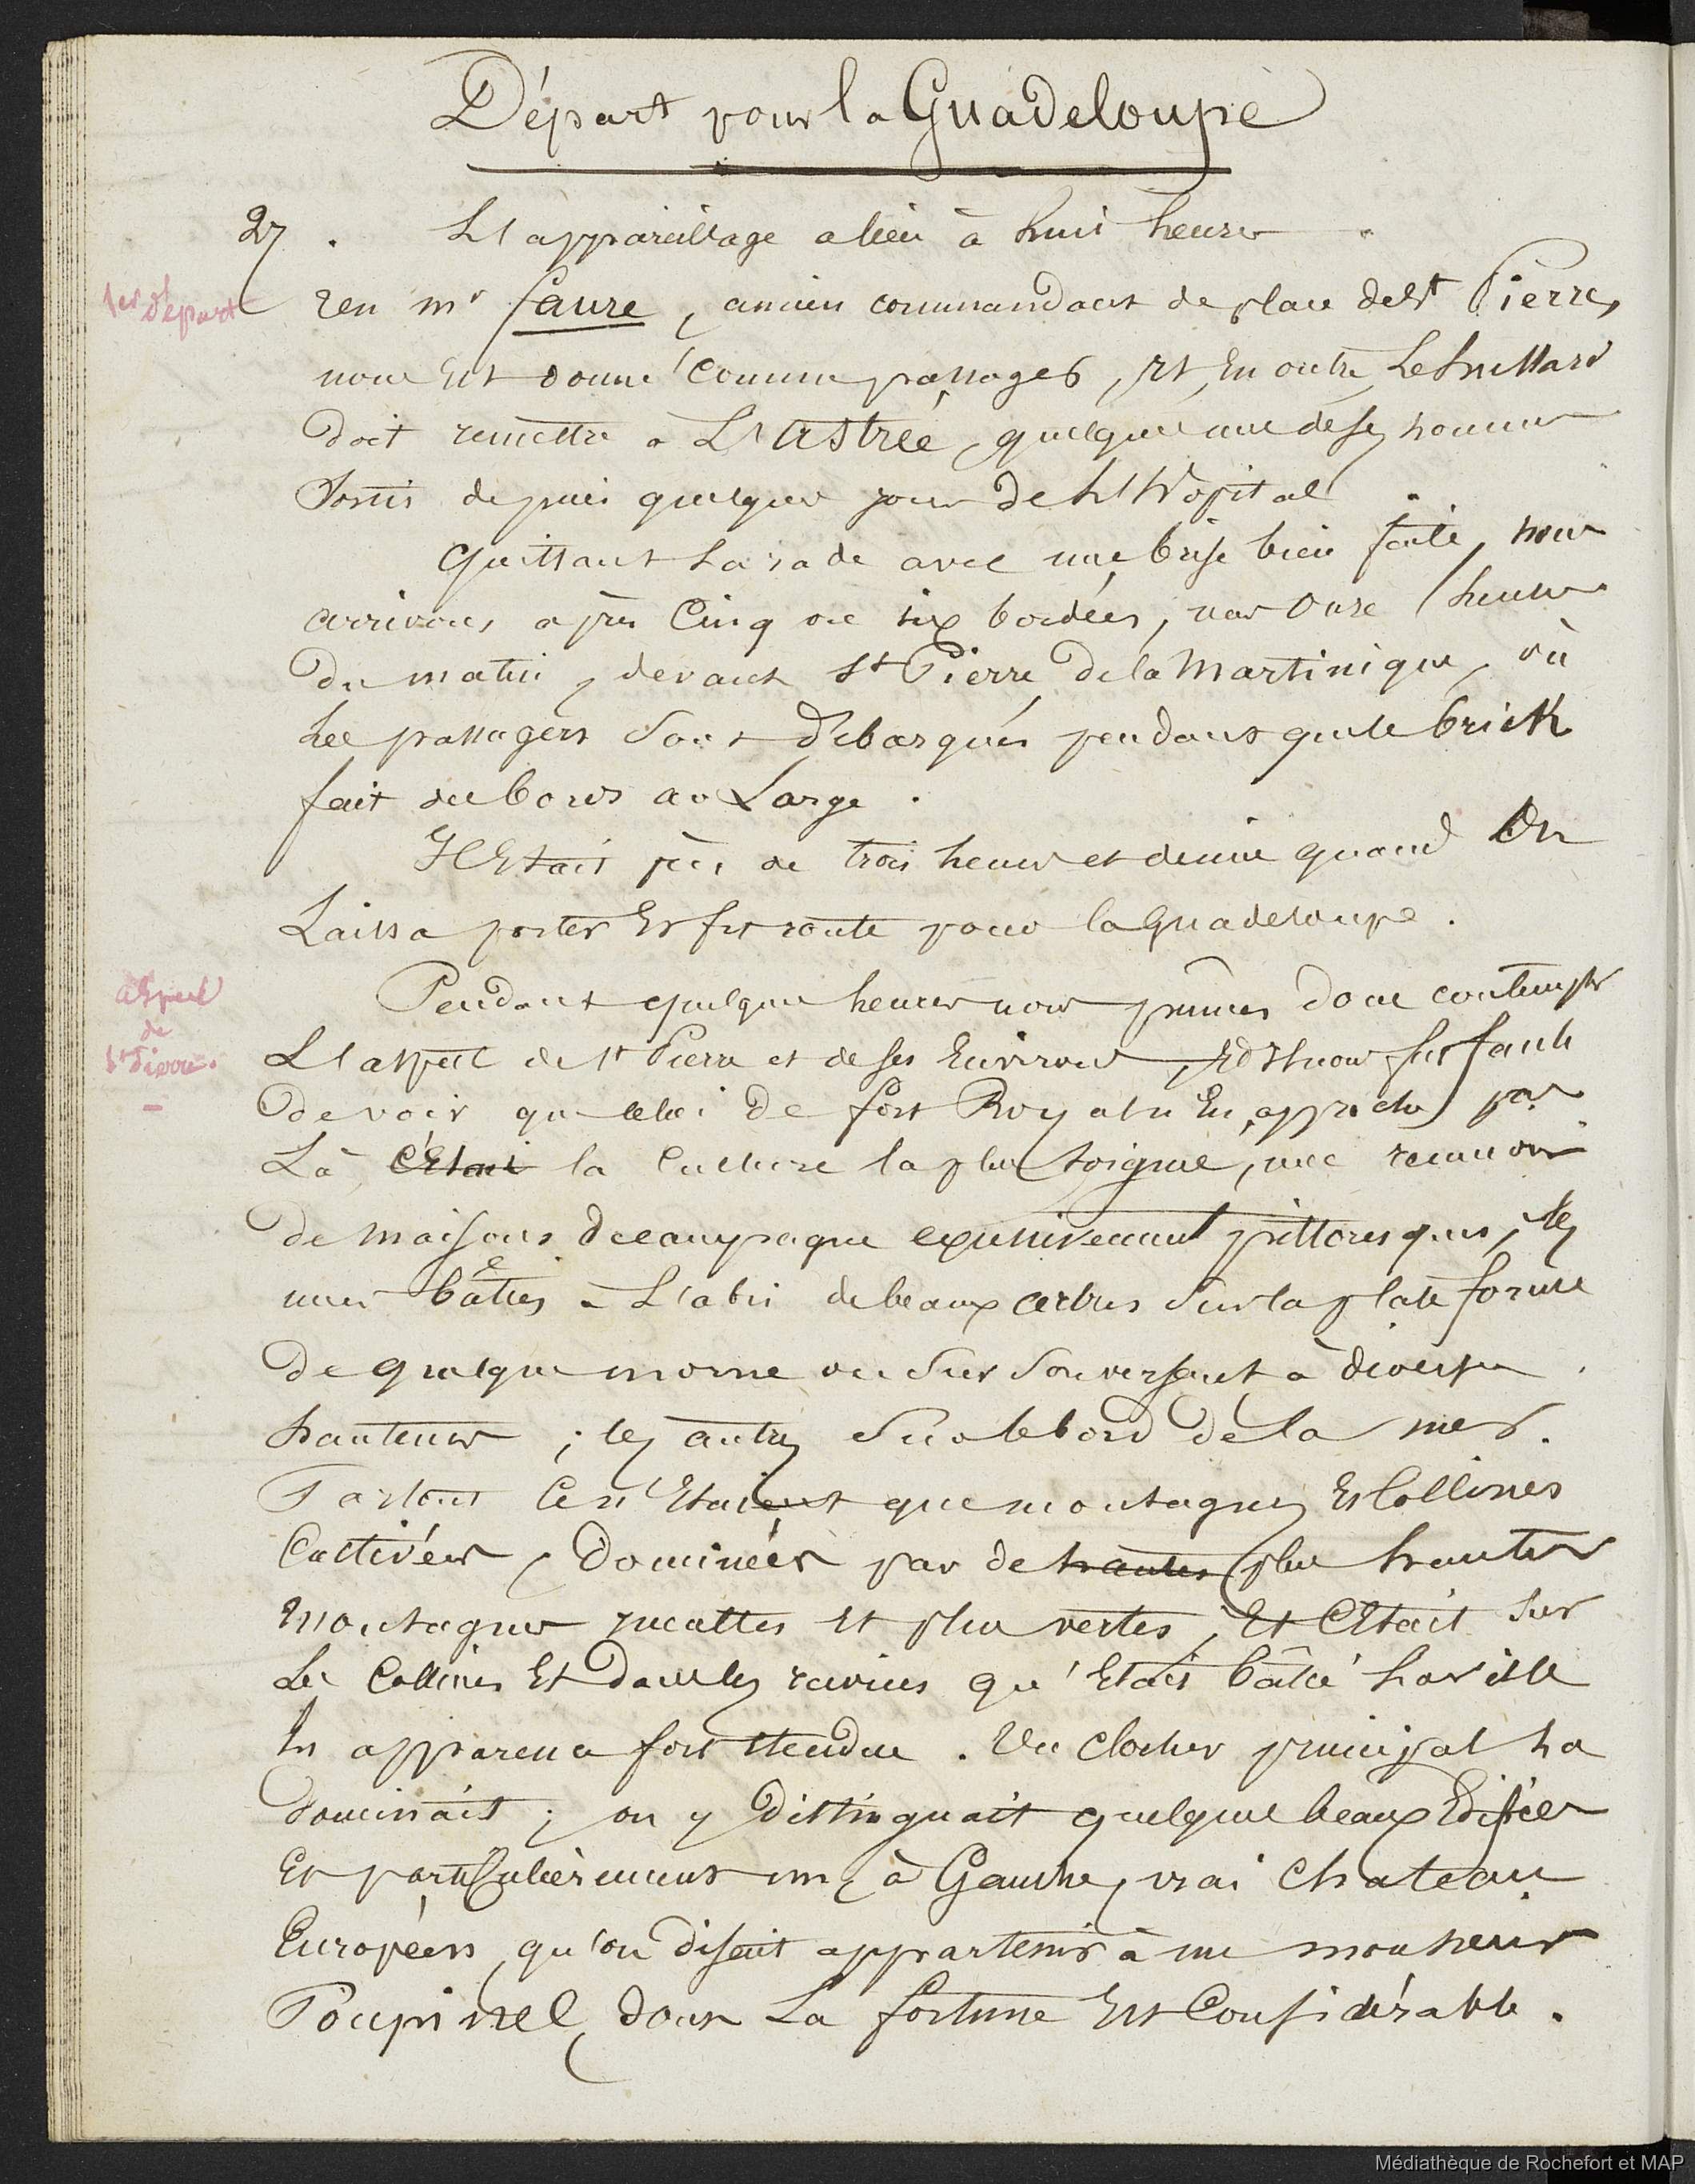 Départ pour la Guadeloupe
27 . L'appareillage a lieu à huit heures .
1er départ
mr faure, ancien commandant de place de St Pierre,
nous est donné comme passager, et en outre Le
doit remettre à L'Astrée, quelques uns de ses hommes
Sortis depuis quelques jours de L'hôpital .
Quittant La rade avec une brise bien faite, nous
arrivons, après Cinq ou six bordées, vers onze heures
du matin, devant St Pierre de la Martinique, où
Les passagers Sont Débarqués pendant que le brick
fait des bords au Large .
Il Etait près de trois heures et demie quand On
Laissa porter Et fit route pour la Guadeloupe .
aspect
de
St Pierre.
Pendant quelques heures nous pûmes donc contempler
L'aspect de St Pierre et de ses Environs, Et il nous fut facile
de voir que celui de fort Royal n'En approche pas
Là C'Etait la Culture la plus soignée, une réunion
de maisons de campagne excessivement pittoresques, les
unes bâties à L'abri de beaux arbres Sur la plate forme
de quelque morne ou Sur Son versant à diverses
hauteurs ; les autres Sur le bord de la mer.
Partout Ce n'Etaient que montagnes Et Collines
Cultivées, Dominées par de hautes plus hautes
montagnes incultes Et plus vertes, Et C'Etait Sur
Les Collines Et dans les ravins qu'Etait bâtie La ville
En apparence fort étendue . Un clocher principal La
dominait ; on y Distinguait quelques beaux Edifices
Et particulièrement un, à Gauche, vrai Chateau
Européen, qu'on disait appartenir à un monsieur
Poupinel, dont La fortune Est Considérable .
Médiathèque de Rochefort et MAP